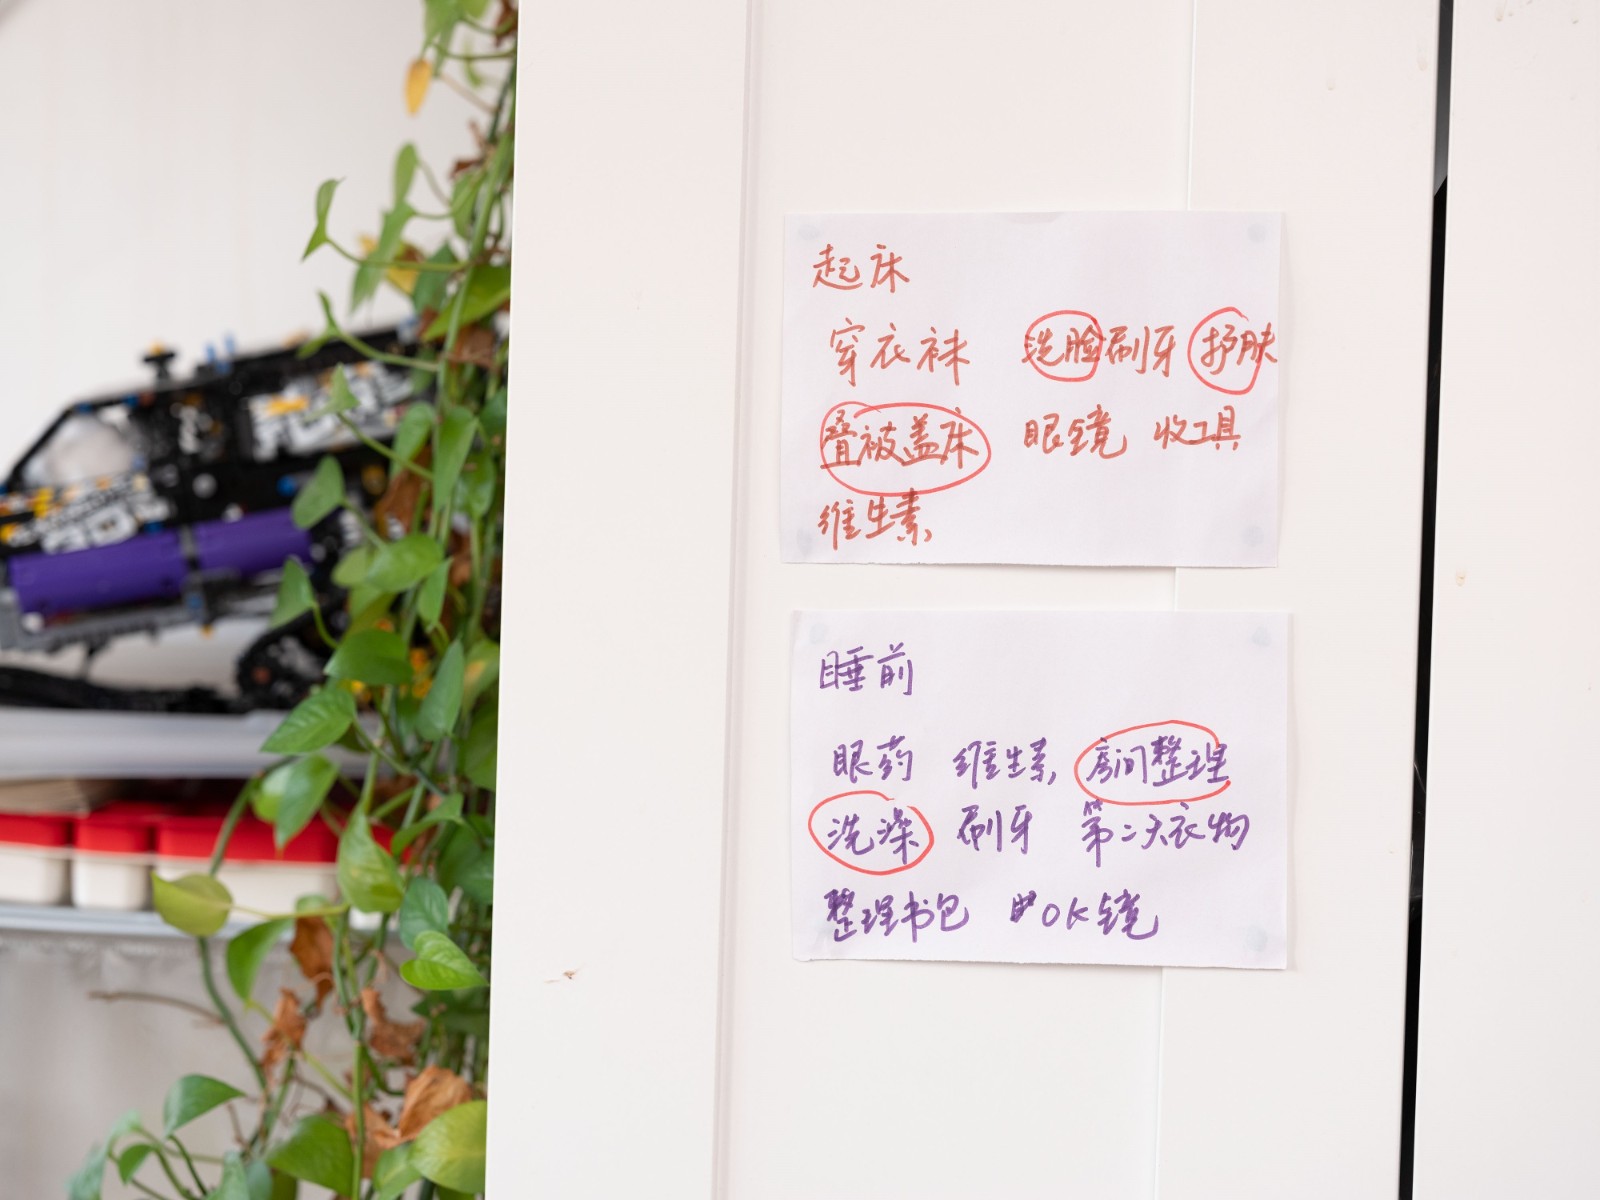 起床
穿衣袜 洗脸刷牙 护肤
叠被盖床 眼镜 收工具
维生素
睡前
眼药 维生素 房间整理
洗澡 刷牙 第二天衣物
整理书包 OK镜